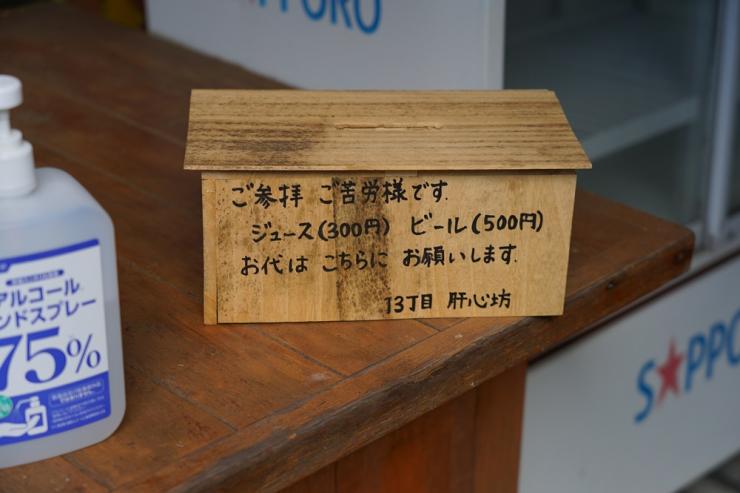 SAPPORO
ご参拝 ご苦労様です.
ジュース(300円) ビール(500円)
お代は こちらに お願いします.
13丁目 肝心坊
アルコール
ンドスプレー
75%
SAPPO